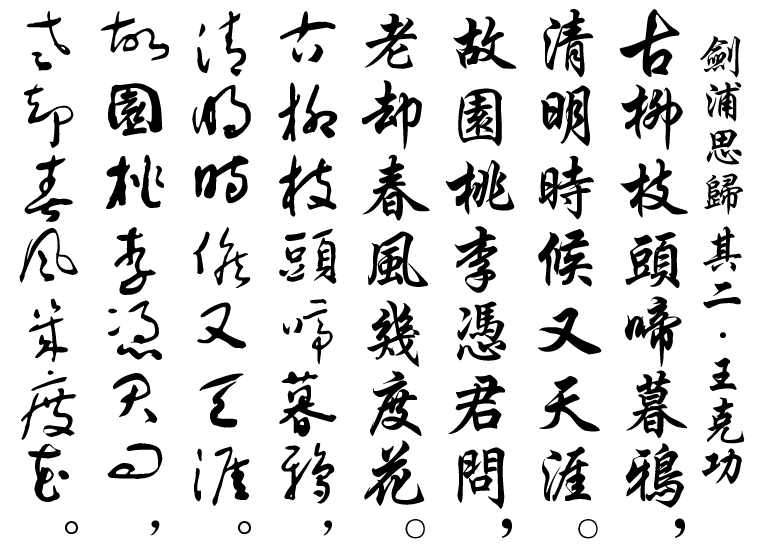 劍浦思歸 其二．王克功
古柳枝頭啼暮鴉，
清明時候又天涯。
故園桃李憑君問，
老却春風幾度花。
古柳枝頭啼暮鴉，
清明時候又天涯。
故園桃李憑君問，
老却春風幾度花。